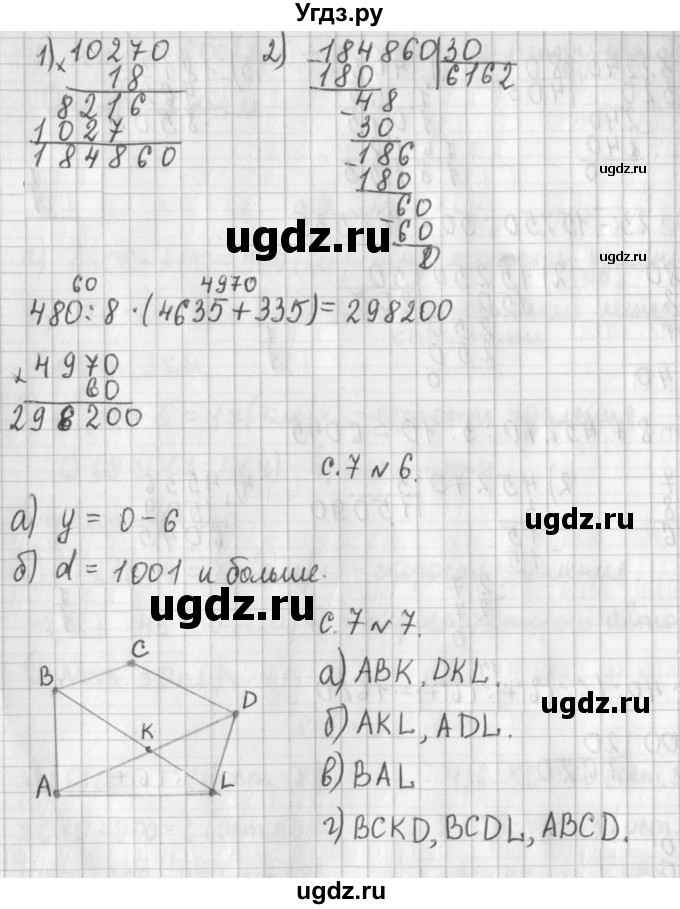 Угдз.ру
1) × 10270
18
8216
1027
184860
2) 184860 | 30
180 | 6162
48
30
186
180
60
60
0
ugdz.ru
ugdz.ru
ugdz.ru
60 4970
480:8·(4635+335)=298200
× 4970
60
298200
с.7 № 6.
а) y = 0-6
б) d = 1001 и больше.
ugdz.ru
ugdz.ru
с.7 № 7.
а) ABK, DKL.
б) AKL, ADL.
в) BAL
г) BCKD, BCDL, ABCD.
ugdz.ru
B
C
D
K
A
L
ugdz.ru
ugdz.ru
ugdz.ru